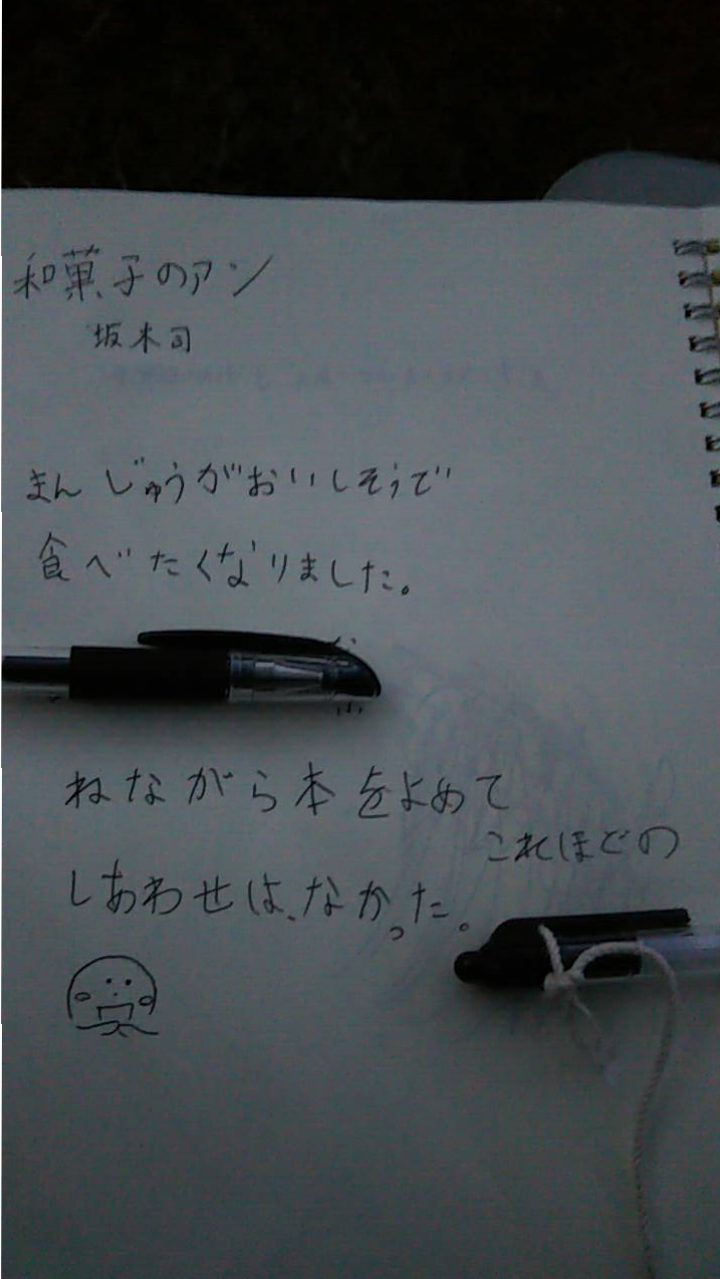 和菓子のアン
坂木司
まんじゅうがおいしそうで
食べたくなりました。
ねながら本をよめて
これほどの
しあわせは、なかった。